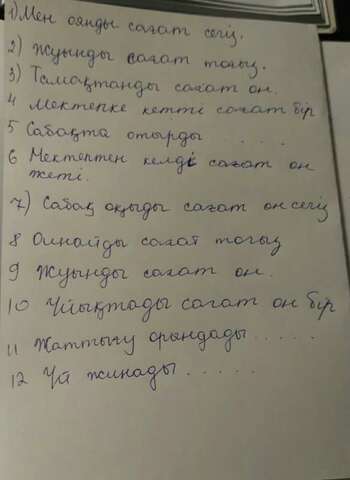 1) Мен оянды сағат сегіз.
2) Жуынды сағат тоғыз.
3) Тамақтанды сағат он.
4 Мектепке кетті сағат бір
5 Сабақта отырды . . . .
6 Мектептен келді сағат он
жеті.
7) Сабақ оқыды сағат он сегіз
8 Ойнайды сағат тоғыз
9 Жуынды сағат он.
10 Ұйықтады сағат он бір
11 Жаттығу орындады . . . . .
12 Үй жинады . . . . .